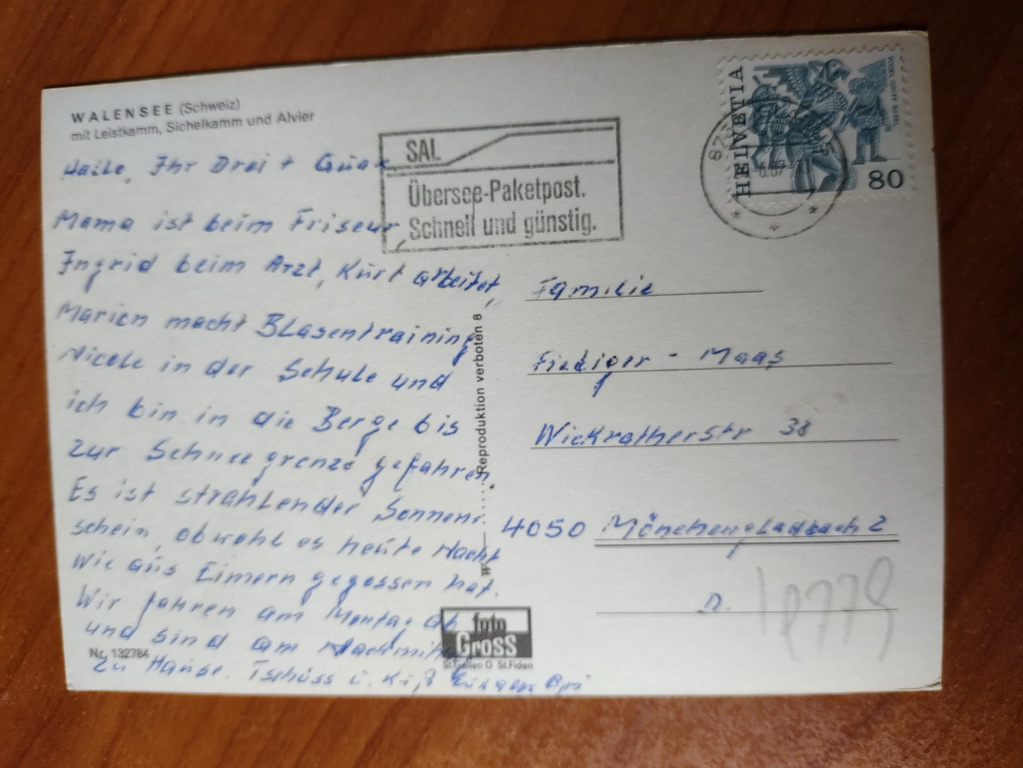 WALENSEE (Schweiz)
mit Leistkamm, Sichelkamm und Alvier
Hallo, Ihr Drei + Quax
Mama ist beim Friseur,
Ingrid beim Arzt, Kurt arbeitet,
Marien macht Blasentraining
Nicole in der Schule und
ich bin in die Berge bis
zur Schneegrenze gefahren.
Es ist strahlender Sonnen-
schein, obwohl es heute Nacht
wie aus Eimern gegossen hat.
Wir fahren am Montag ab
und sind am Nachmittag
zu Hause. Tschüss u.
Nr. 132784
SAL
Übersee-Paketpost.
Schnell und günstig.
HELVETIA
80
Reproduktion verboten 8
foto
Gross
St. Gallen O St. Fiden
Familie
- Maas
Wickratherstr 38
4050 Mönchengladbach 2
D.